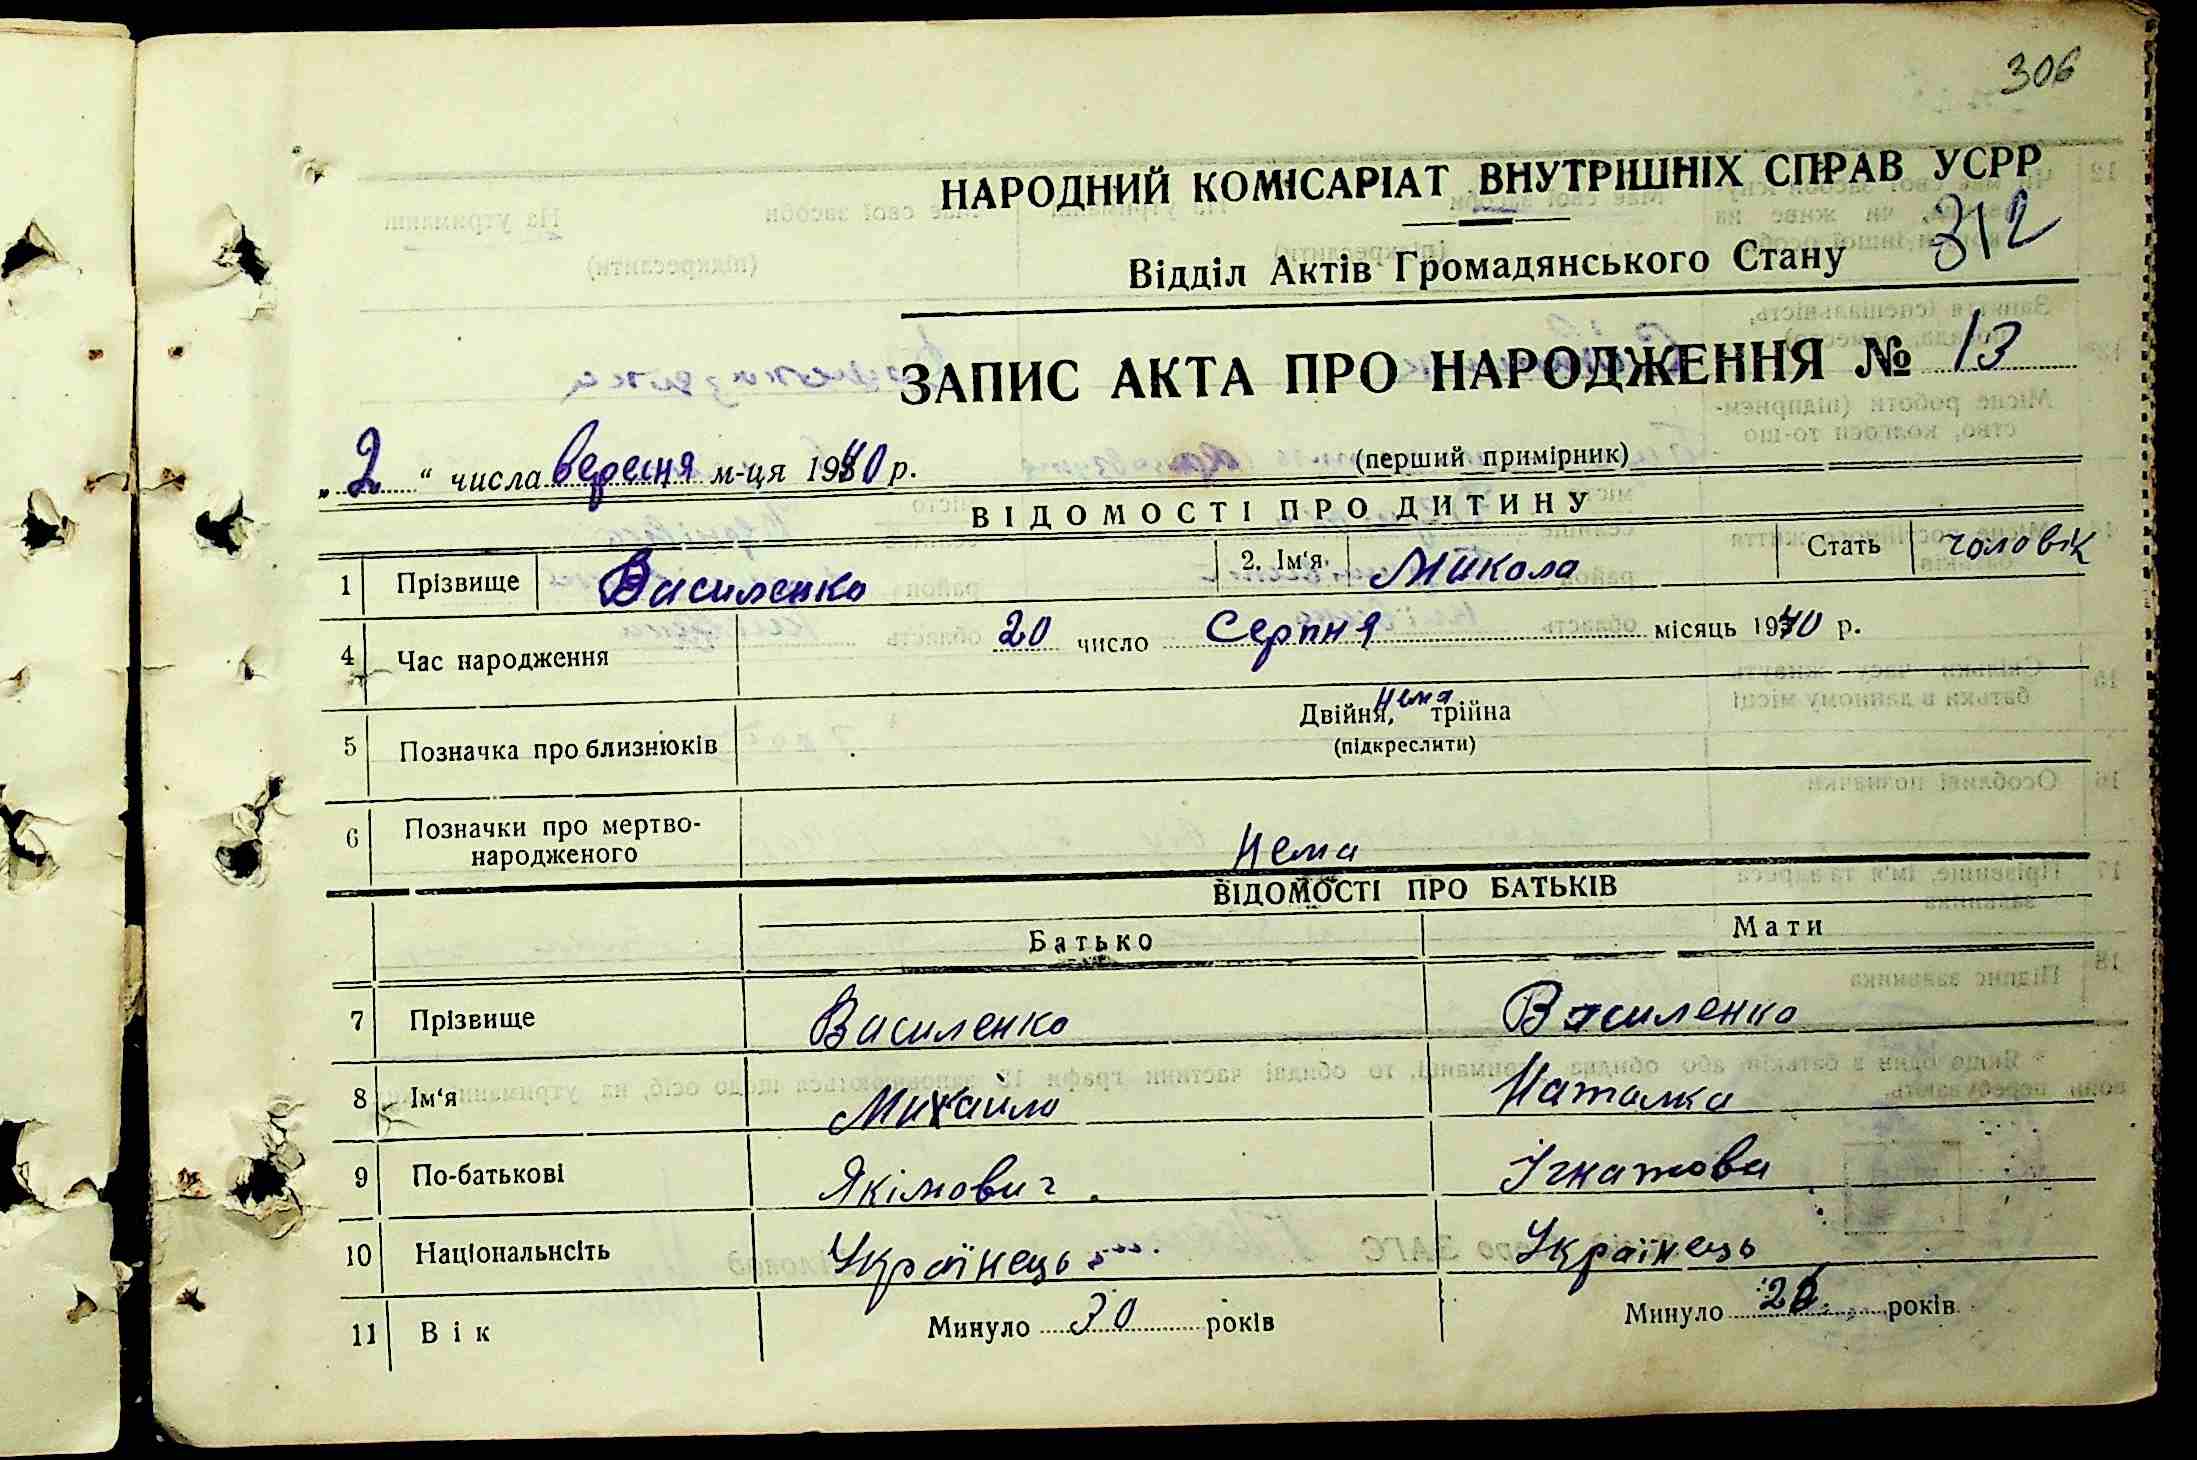 306
НАРОДНИЙ КОМІСАРІАТ ВНУТРІШНІХ СПРАВ УСРР
312
Відділ Актів Громадянського Стану
ЗАПИС АКТА ПРО НАРОДЖЕННЯ № 13
„ 2 “ числа вересня м-ця 1940 р. (перший примірник)
ВІДОМОСТІ ПРО ДИТИНУ
1 Прізвище Василенко 2. Ім‘я Микола Стать чоловік
4 Час народження 20 число Серпня місяць 1940 р.
5 Позначка про близнюків Двійня, нема трійна
(підкреслити)
6 Позначки про мертво-
народженого нема
ВІДОМОСТІ ПРО БАТЬКІВ
Батько Мати
7 Прізвище Василенко Василенко
8 Ім‘я Михайло Наталка
9 По-батькові Якімович Ігнатова
10 Національнсіть Українець Українець
11 Вік Минуло 30 років Минуло 26 років